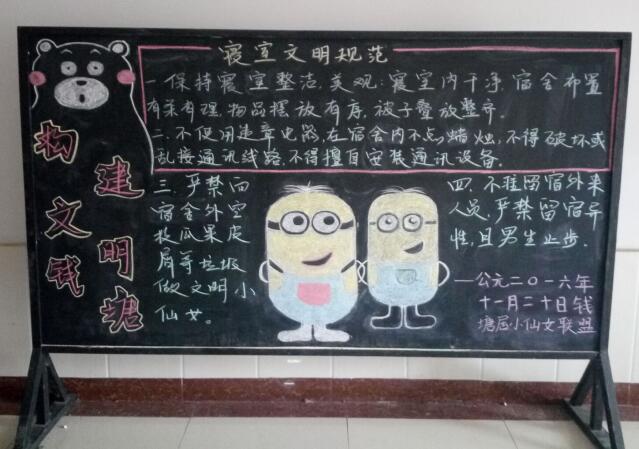 寝室文明规范
一.保持寝室整洁,美观;寝室内干净,宿舍布置
有条有理,物品摆放有序,被子叠放整齐.
二.不使用违章电器,在宿舍内不点蜡烛,不得破坏或
乱接通讯线路,不得擅自安装通讯设备.
构建
文明
钱塘
三.严禁向
宿舍外空
投瓜果皮
屑等垃圾
做文明小
仙女。
四.不准留宿外来
人员,严禁留宿异
性,且男生止步.
—公元二〇一六年
十一月二十日钱
塘居小仙女联盟